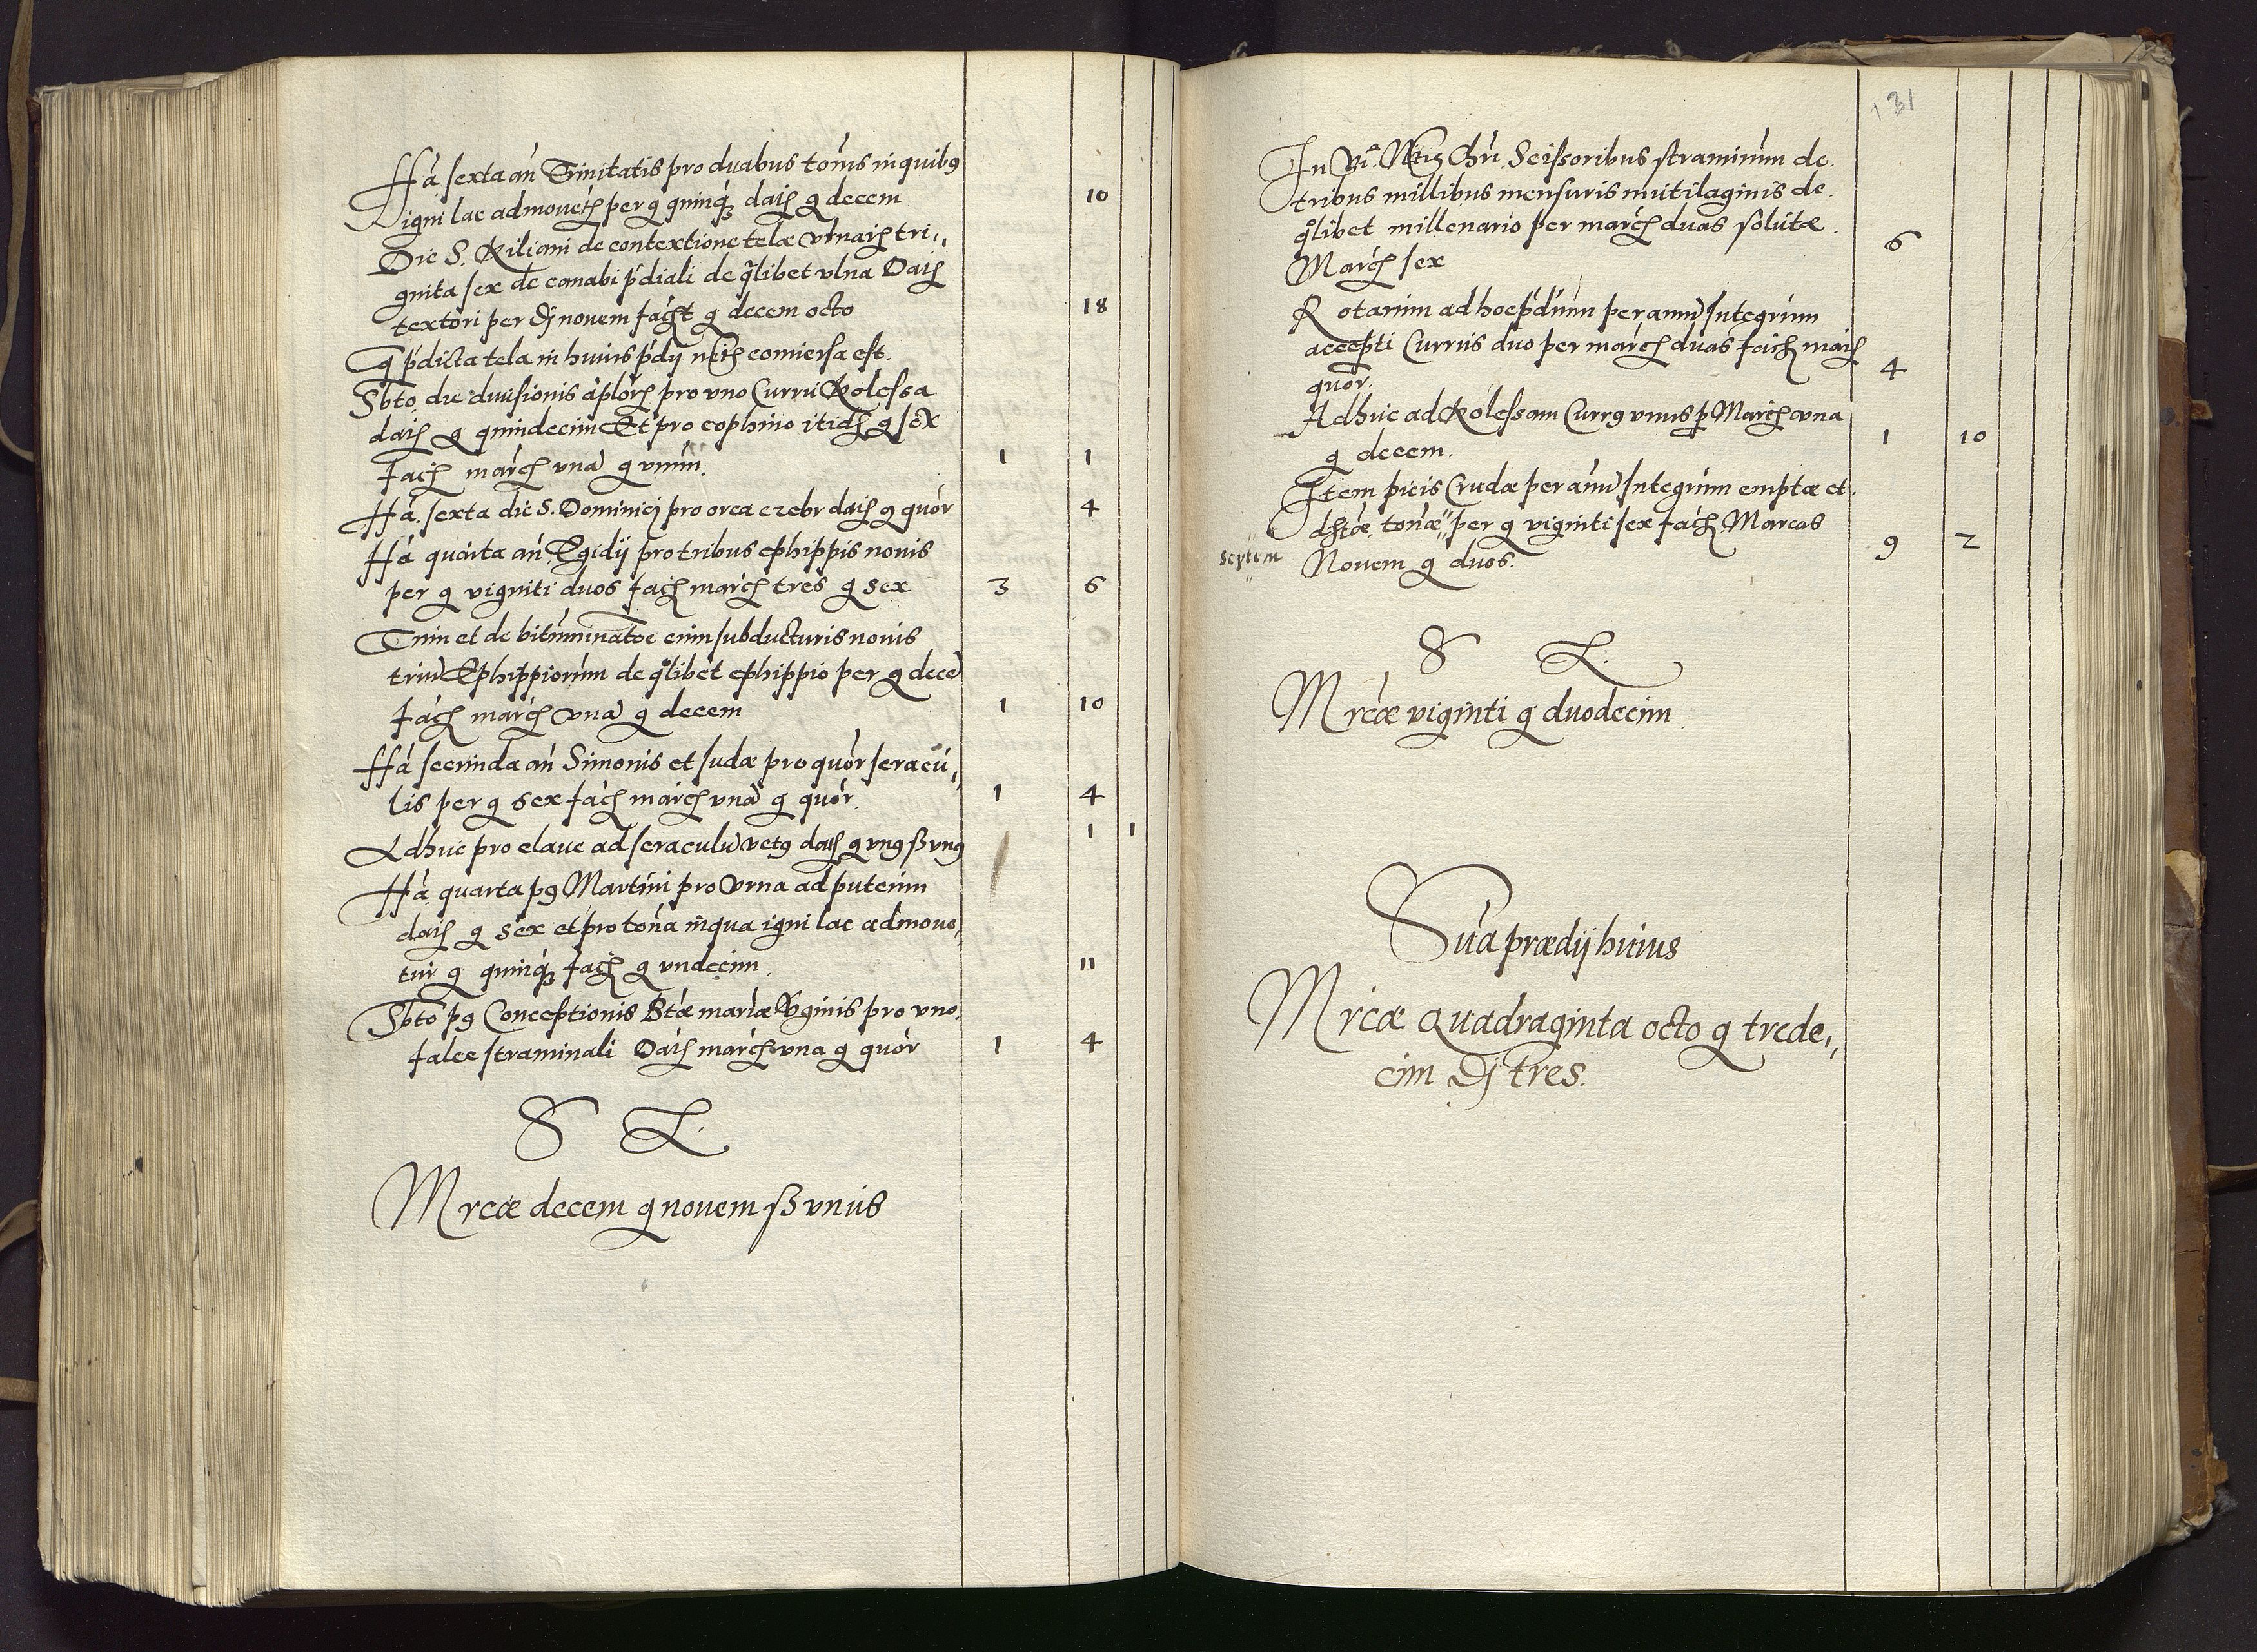 ffā. sexta añ Trinitatis pro duabus toñis in quibꝯ
igni lac admovetᷣ per g quinqꝫ datᷣ g decem 10
Die S. Kiliani de contextione telæ vlnarᷣ tri„
ginta sex de canabi p̄diali de q̄libet vlna Datᷣ
textori per dj novem facit g decem octo 18
q̄ p̄dicta tela in huius p̄dij
Sbto die divisionis aplorᷣ pro vno Curru Kolessa
datᷣ g quindecim Et pro cophino itidē g sex
faciᷣ marcᷣ vnā g vnum. 1 1
ffā. sexta die S. Dominici pro orca czebr datᷣ g quor 4
ffā quarta añ Egidij pro tribus ephippis novis
per g viginti duos faciᷣ marcᷣ tres g sex 3 6
trium Ephippiorum de q̊libet ephippio per g decē
faciᷣ marcᷣ vnā g decem 1 10
ffā secunda añ Simonis et Judæ pro quor seracu„
lis per g sex faciᷣ marcᷣ vnā g quor. 1 4
Adhuc pro clave ad seraculū vetꝯ datᷣ g vnꝯ ß vnꝯ 1 1
ffā. quarta pꝯ Martini pro Vrna ad puteum
datᷣ g sex et pro toña in qua igni lac admove„
tur g quinqꝫ faciᷣ g vndecim. 11
Sbto pꝯ Conceptionis Btæ mariæ Vginis pro vno
falce straminali Datᷣ marcᷣ vna g quor 1 4
S L.
Mrcæ decem g novem ß vnus
131
In Vi. Ntis Chri. Scissoribus straminum de
tribus millibus mensuris mutilaginis de
q̊libet millenario per marcᷣ duas solutæ
Marcᷣ sex 6
Rotarum ad hoc p̄dium per annū Integrum
accepti Currus duo per marcᷣ duas faciᷣ marcᷣ
quor. 4
Adhuc ad Kolessam Currꝯ vnus p̱ Marcᷣ vna
g decem. 1 10
Item picis Crudæ per annū Integrum emptæ et
toñæ" per g viginti sex faciᷣ Marcas
"septem"
Novem g duos. 9 2
S L.
Mrcæ viginti g duodecim.
Suā prædij huius
Mrcæ Quadraginta octo g trede„
cim dj tres.